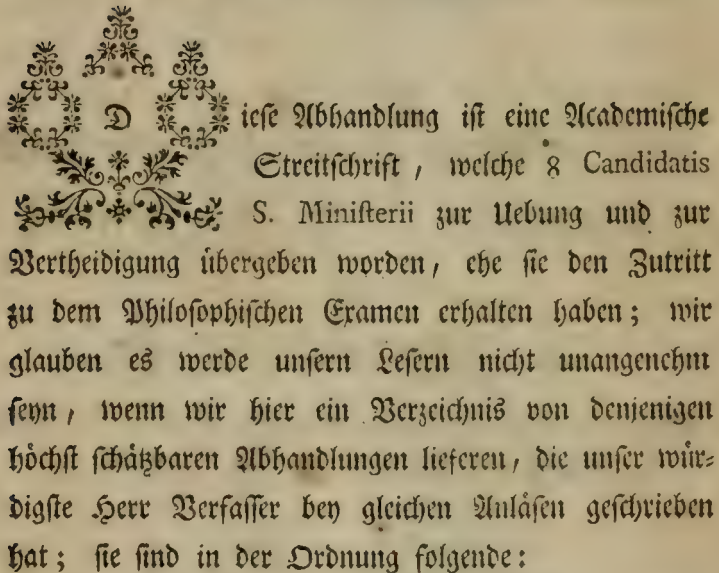 Diese Abhandlung ist eine Academische
Streitschrift, welche 8 Candidatis
S. Ministerii zur Uebung und zur
Vertheidigung übergeben worden, ehe sie den Zutritt
zu dem Philosophischen Examen erhalten haben; wir
glauben es werde unsern Lesern nicht unangenehm
seyn, wenn wir hier ein Verzeichnis von denjenigen
höchst schätzbaren Abhandlungen lieferen, die unser wür-
digste Herr Verfasser bey gleichen Anläsen geschrieben
hat; sie sind in der Ordnung folgende: